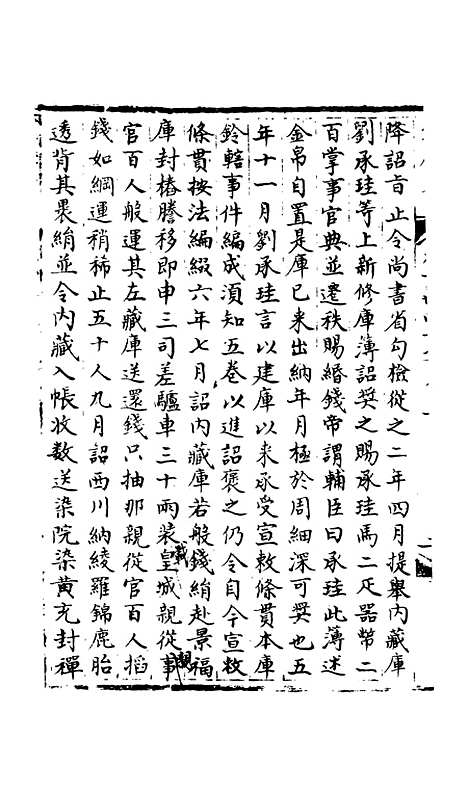 降詔旨止令尚書省勾檢從之二年四月提舉内藏庫
劉承珪等上新修庫簿詔奬之賜承珪馬二疋器幣二
百掌事官典並遷秩賜緡錢帝謂輔臣曰承珪此薄述
金帛自置是庫已来出納年月極於周細深可奬也五
年十一月劉承珪言以建庫以来承受宣敕條貫本庫
鈐轄事件編成須知五卷以進詔褒之仍令自今宣敕
條貫按法編綴六年七月詔内藏庫若般錢絹赴景福
庫封樁謄移即申三司差驢車三十兩裝載皇城親從事
官百人般運其左藏庫送還錢只抽那親從官百人搯
錢如綱運稍稀止五十人九月詔西川納綾羅錦鹿胎
透背其疊絹並令内藏入帳收数送染院染黄充封禪